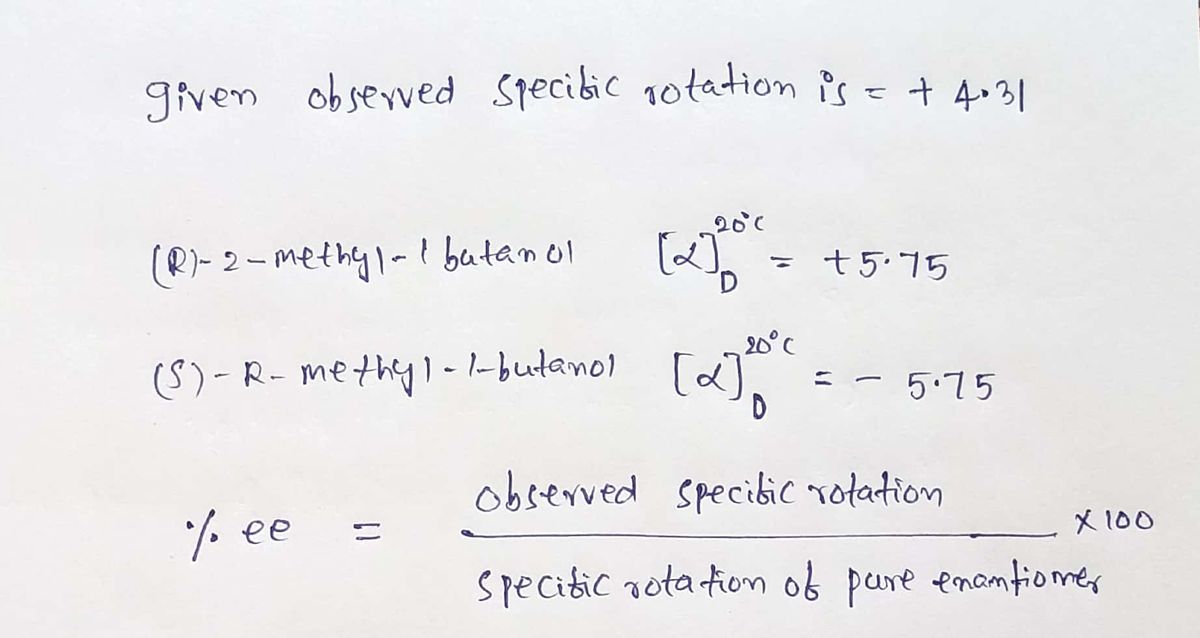 given observed specific rotation is = + 4.31
(R)-2-methyl-1 butanol [α]D20°C = +5.75
(S)-R-methyl-1-butanol [α]D20°C = - 5.75
% ee = observed specific rotation / specific rotation of pure enantiomer × 100